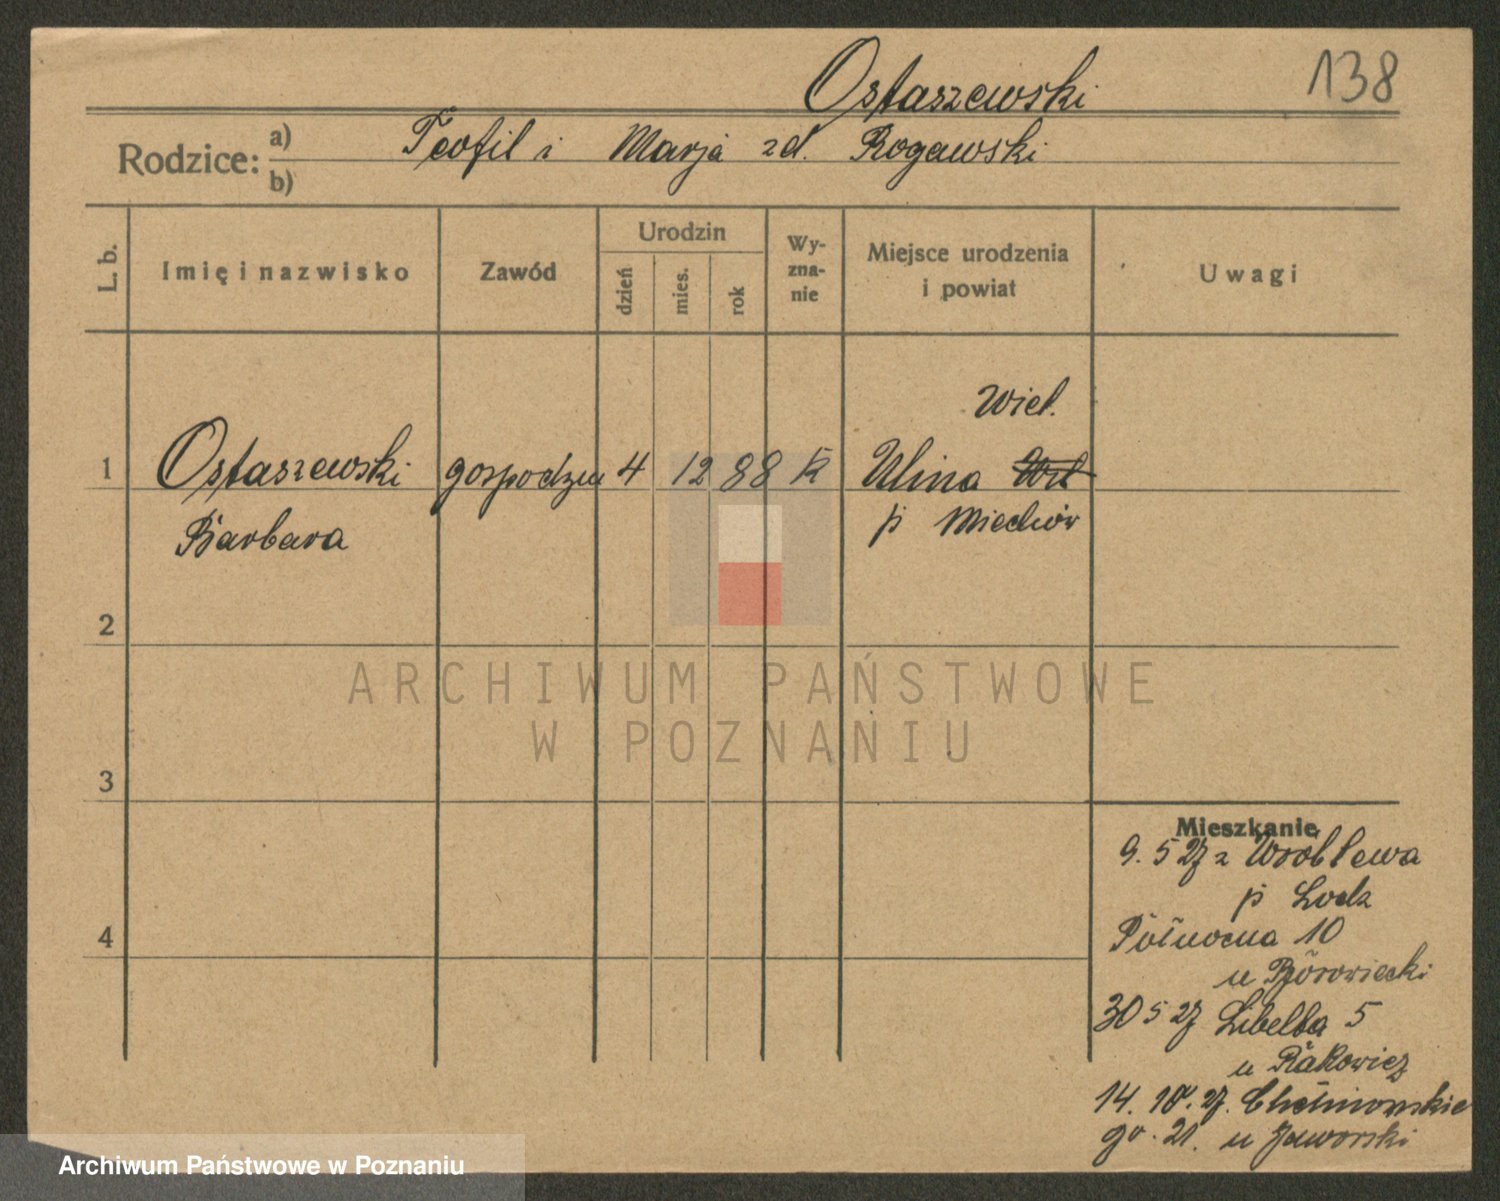 138
Ostaszewski
Rodzice: a) Teofil i Marja zd. Rogawski
b)
L. b.
Imię i nazwisko
Zawód
Urodzin
dzień
mies.
rok
Wy-
zna-
nie
Miejsce urodzenia
i powiat
Uwagi
Wiel.
1 Ostaszewski 4 12 88 k Ulina
Barbara p Miechów
2
3
4
ARCHIWUM PAŃSTWOWE
W POZNANIU
Mieszkanie
9. 5 27 z Wróblewa
p Lodz
Północna 10
u Borowiecki
30 5 27 Libelta 5
u Rakowicz
14. 10. 27. Chełmońskie
go. 21. u Jaworski
Archiwum Państwowe w Poznaniu